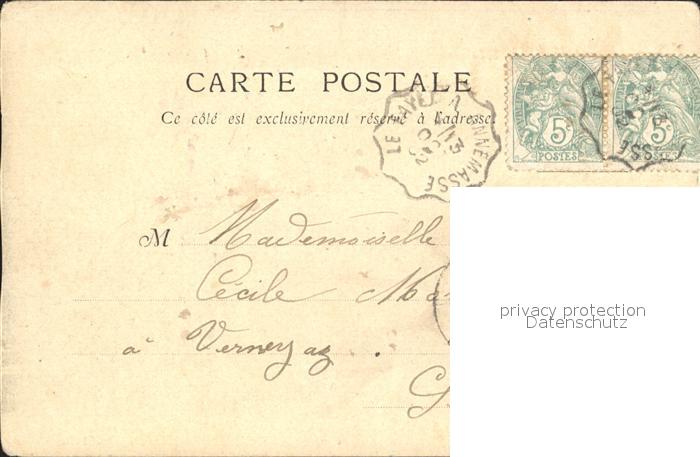 CARTE POSTALE
Ce côté est exclusivement réservé à l'adresse.
5c 5c
POSTES
LE FAYET A ANNEMASSE
M Mademoiselle
Cécile
à Vernayaz.
privacy protection
Datenschutz